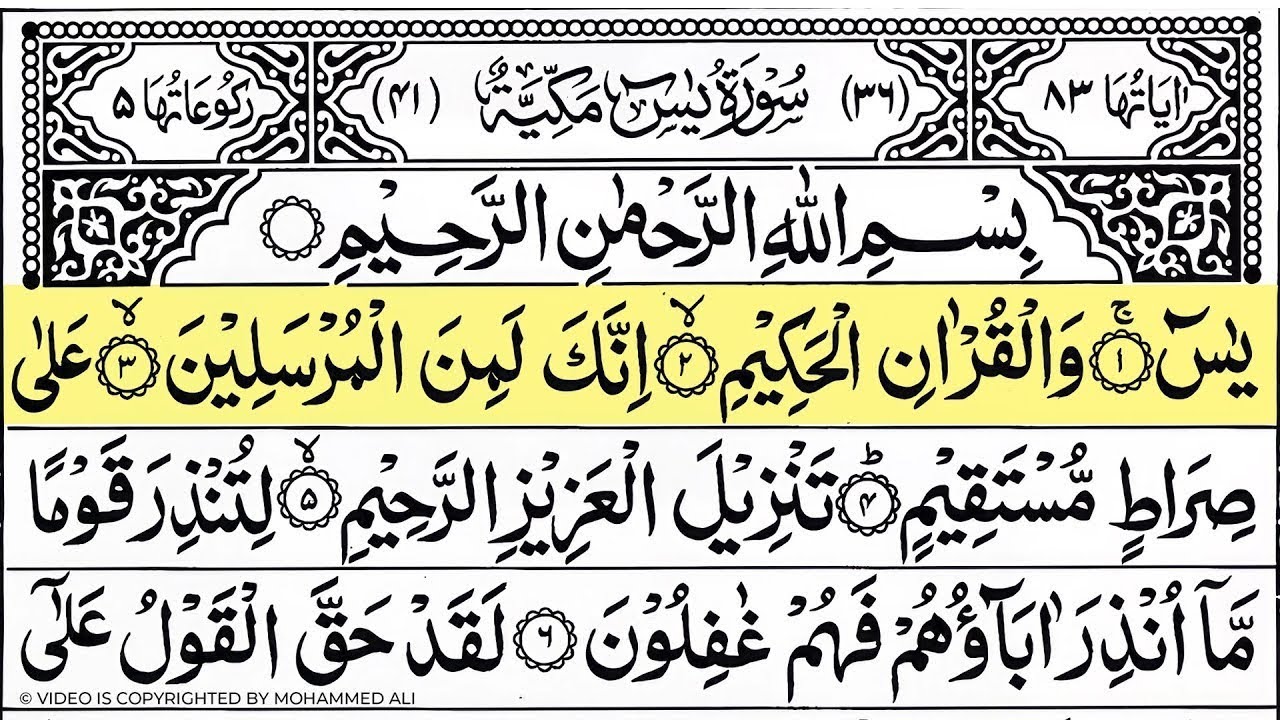 اٰیَاتُهَا ۸۳ (۳۶) سُوْرَةُ یٰسٓ مَکِّیَّةٌ (۴۱) رُکُوْعَاتُهَا ۵
بِسْمِ اللّٰهِ الرَّحْمٰنِ الرَّحِیْمِ
یٰسٓ ۚ﴿۱﴾ وَالْقُرْاٰنِ الْحَکِیْمِ ۙ﴿۲﴾ اِنَّکَ لَمِنَ الْمُرْسَلِیْنَ ۙ﴿۳﴾ عَلٰی
صِرَاطٍ مُّسْتَقِیْمٍ ؕ﴿۴﴾ تَنْزِیْلَ الْعَزِیْزِ الرَّحِیْمِ ۙ﴿۵﴾ لِتُنْذِرَ قَوْمًا
مَّاۤ اُنْذِرَ اٰبَآؤُهُمْ فَهُمْ غٰفِلُوْنَ ﴿۶﴾ لَقَدْ حَقَّ الْقَوْلُ عَلٰۤی
© VIDEO IS COPYRIGHTED BY MOHAMMED ALI